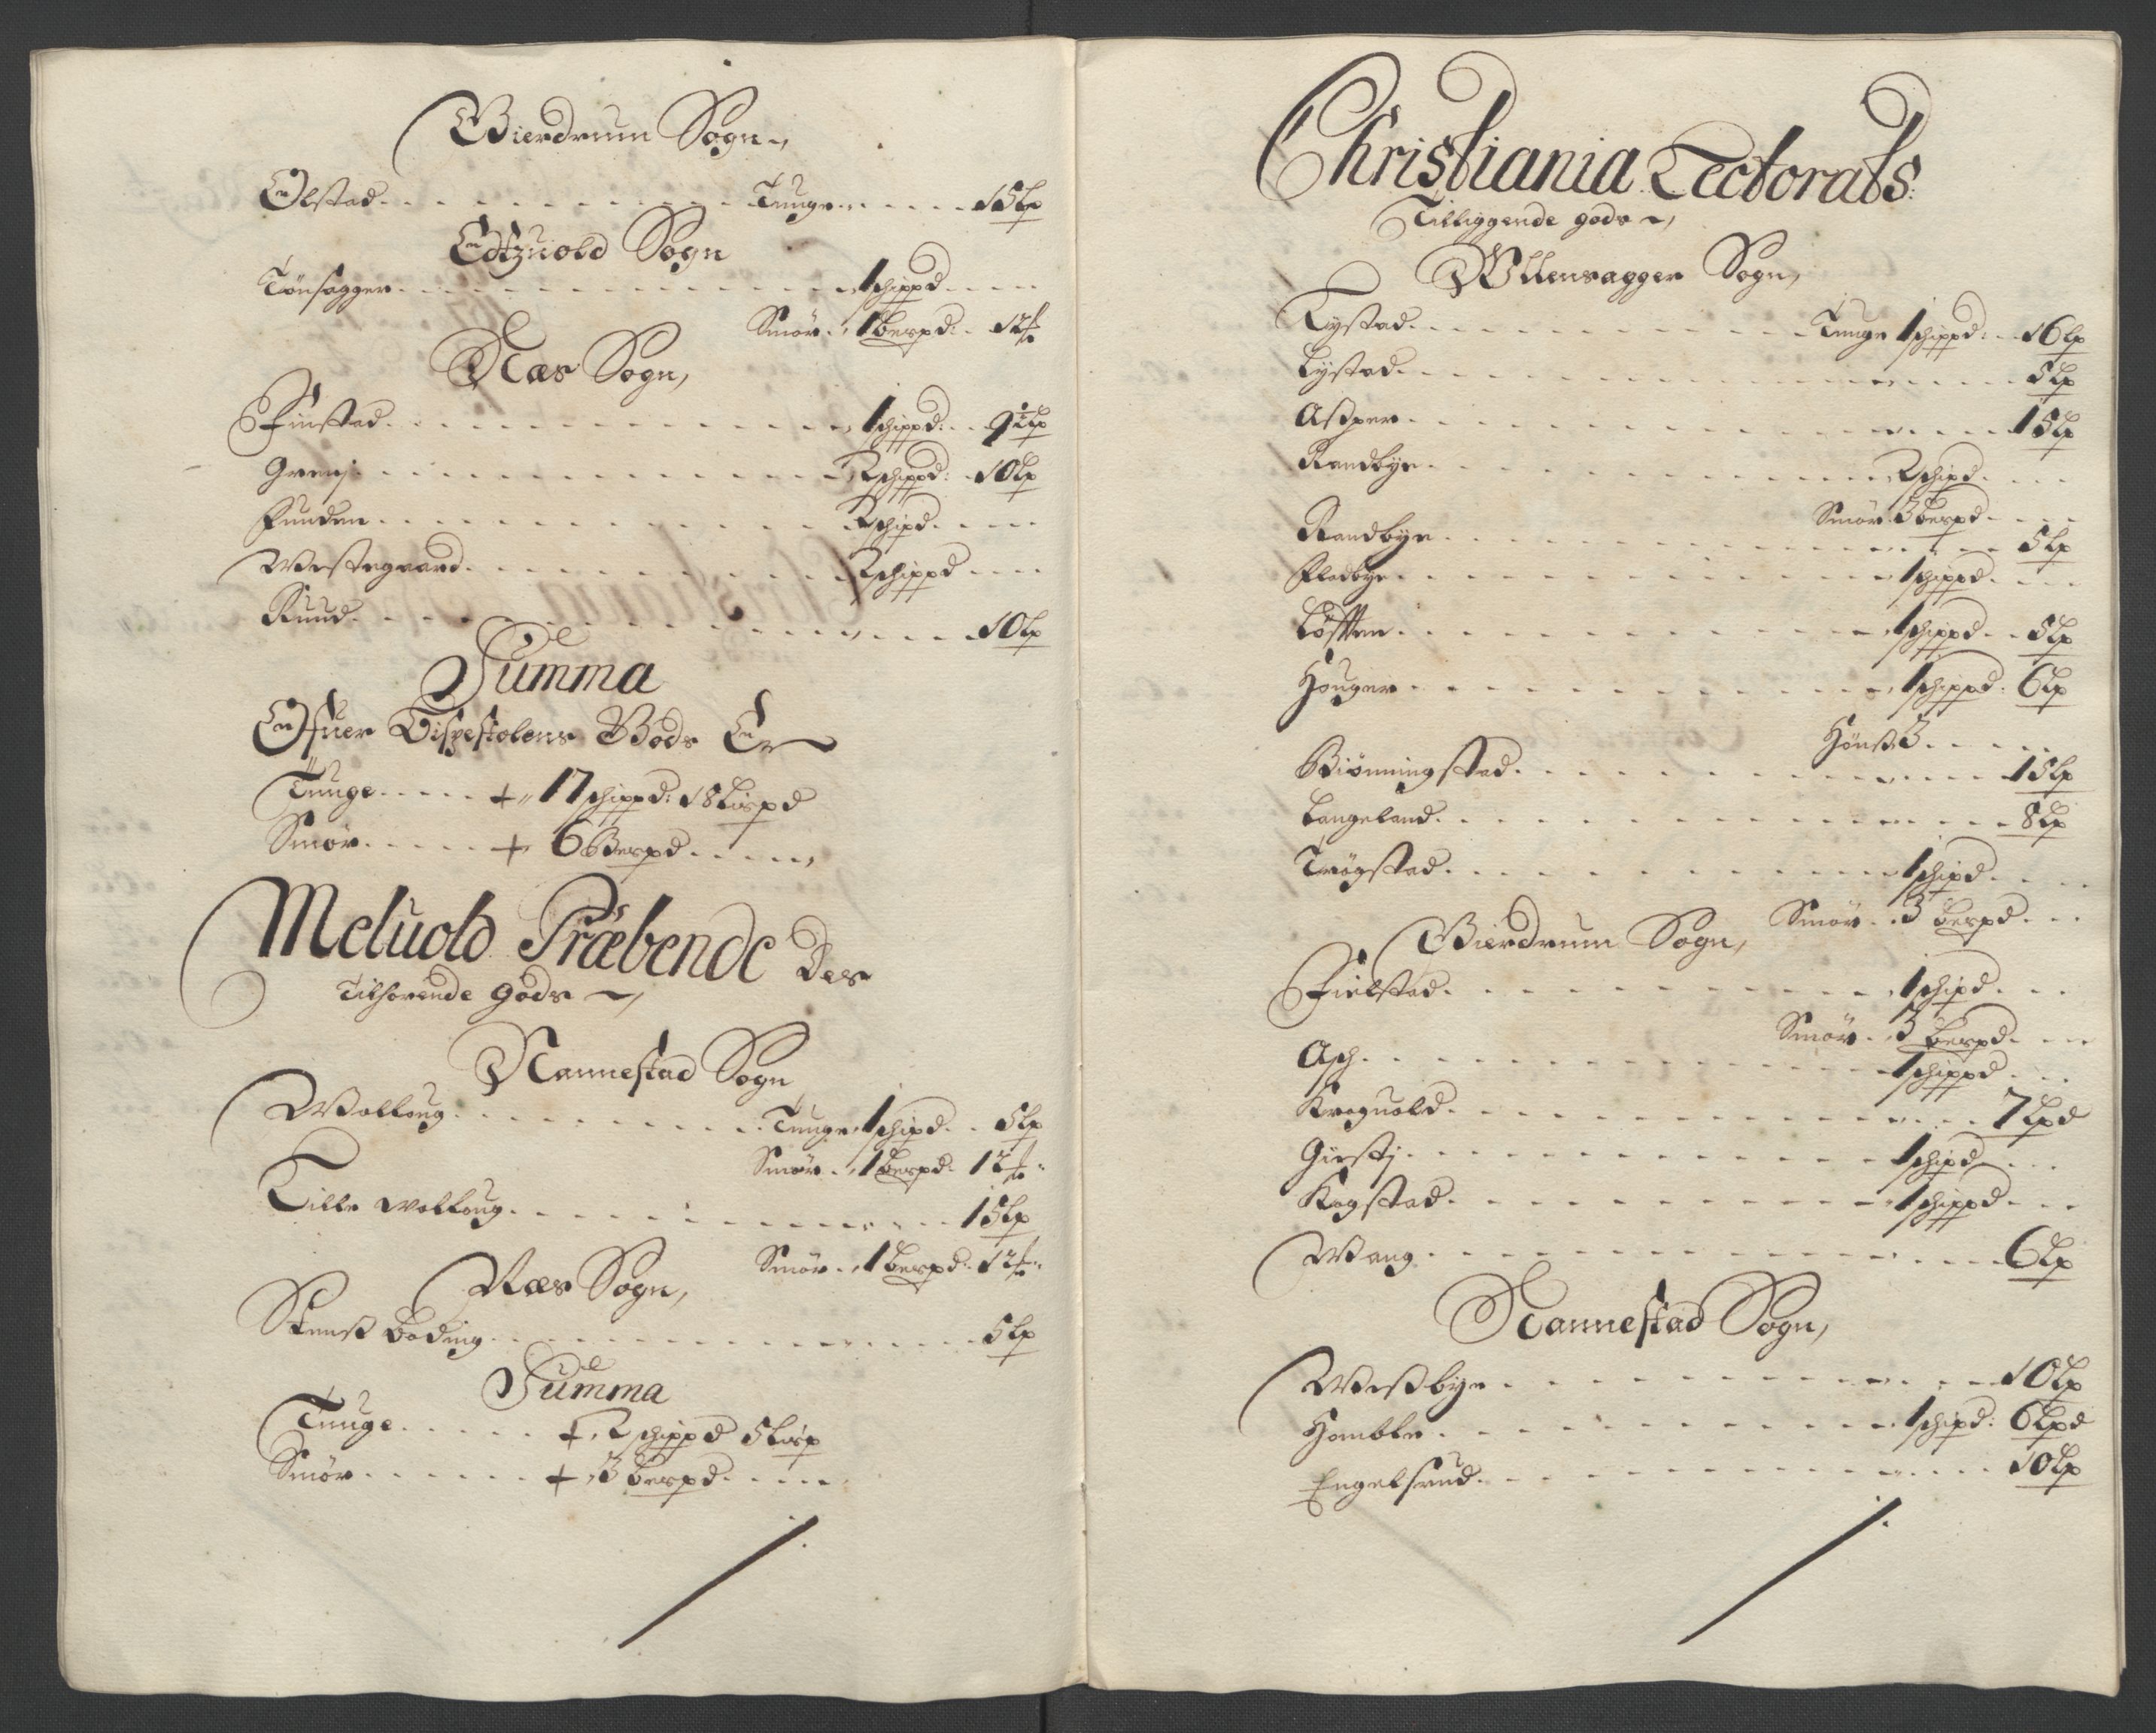 Gierdrum Sogn,
Ølstad . . . Tunge . . . 15 Lp
Edtzuold Sogn
Tønsagger . . . 1 schippd . . .
Smør . 1 Berpd: . 12 ℔
Næs Sogn,
Finstad . . . 1 schippd: . . 9½ Lp
Grenj . . . 2 schippd: . 10 Lp
Funden . . . 2 schipd . . .
Westegaard . . . 2 schippd . . .
Ruud . . . 10 Lp
Summa
Ofuer Bispestolens Gods Er
Tunge . . . + 17 schippd: 18 Lispd
Smør . . . + 6 Berpd . . .
Meluold Præbende Des
Tilhørende gods
Nannestad Sogn
Wolloug . . . Tunge 1 schipd . . 5 Lp
Smør . 1 Berpd . 12 ℔
Lille wolloug . . . 15 Lp
Smør . 1 Berpd: 12 ℔
Næs Sogn,
Skenß Boding . . . 5 Lp
Summa
Tunge . . . + 2 schippd 5 Lisp
Smør . . . + 3 berpd . . .
Christiania Lectorats
Tilliggende gods
Ullensagger Sogn,
Lystad . . . Tunge 1 schippd: . 16 Lp
Lystad . . . 5 Lp
Asper . . . 15 Lp
Randbye . . . 2 schipd . . .
Smør 3 berpd . . .
Randbye . . . 5 Lp
Fladbye . . . 1 schippd . . .
Løfften . . . 1 schippd . . 5 Lp
Houger . . . 1 schippd: 6 Lp
Hønß 3 . . .
Biønningstad . . . 15 Lp
Langeland . . . 8 Lp
Trøgstad . . . 1 schipd . . .
Smør . 3 berpd . . .
Gierdrum Sogn,
Fielstad . . . 1 schipd . . .
Smør . 3 berpd . . .
Asch . . . 1 schippd . . .
Kroguold . . . 7 Lpd
Giestj . . . 1 schipd . . .
Kogstad . . . 1 schippd . . .
Wang . . . 6 Lp
Nannestad Sogn,
Westbye . . . 10 Lp
Homble . . . 1 schipd: 6 Lpd
Engelsrud . . . 10 Lp